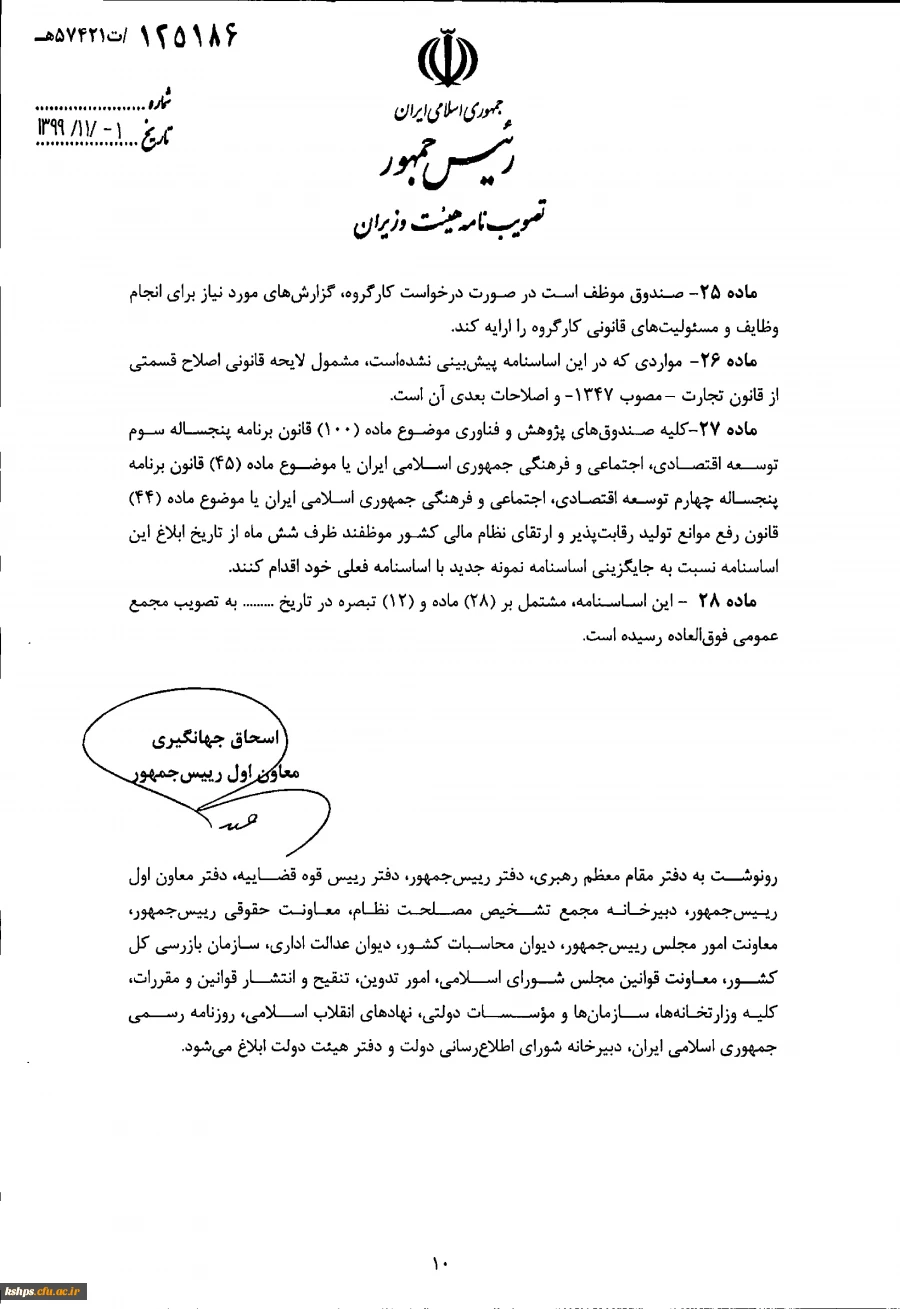 ۱۲۵۱۸۶ /ت۵۷۴۲۱هـ
جمهوری اسلامی ایران
رئیس جمهور
تصویب نامه هیئت وزیران
شماره
تاریخ ۱۳۹۹/۱۱/۰۱
ماده ۲۵- صندوق موظف است در صورت درخواست کارگروه، گزارش‌های مورد نیاز برای انجام
وظایف و مسئولیت‌های قانونی کارگروه را ارایه کند.
ماده ۲۶- مواردی که در این اساسنامه پیش‌بینی نشده‌است، مشمول لایحه قانونی اصلاح قسمتی
از قانون تجارت -مصوب ۱۳۴۷- و اصلاحات بعدی آن است.
ماده ۲۷-کلیه صندوق‌های پژوهش و فناوری موضوع ماده (۱۰۰) قانون برنامه پنجساله سوم
توسعه اقتصادی، اجتماعی و فرهنگی جمهوری اسلامی ایران یا موضوع ماده (۴۵) قانون برنامه
پنجساله چهارم توسعه اقتصادی، اجتماعی و فرهنگی جمهوری اسلامی ایران یا موضوع ماده (۴۴)
قانون رفع موانع تولید رقابت‌پذیر و ارتقای نظام مالی کشور موظفند ظرف شش ماه از تاریخ ابلاغ این
اساسنامه نسبت به جایگزینی اساسنامه نمونه جدید با اساسنامه فعلی خود اقدام کنند.
ماده ۲۸ - این اساسنامه، مشتمل بر (۲۸) ماده و (۱۲) تبصره در تاریخ ........ به تصویب مجمع
عمومی فوق‌العاده رسیده است.
اسحاق جهانگیری
معاون اول رییس‌جمهور
رونوشت به دفتر مقام معظم رهبری، دفتر رییس‌جمهور، دفتر رییس قوه قضاییه، دفتر معاون اول
رییس‌جمهور، دبیرخانه مجمع تشخیص مصلحت نظام، معاونت حقوقی رییس‌جمهور،
معاونت امور مجلس رییس‌جمهور، دیوان محاسبات کشور، دیوان عدالت اداری، سازمان بازرسی کل
کشور، معاونت قوانین مجلس شورای اسلامی، امور تدوین، تنقیح و انتشار قوانین و مقررات،
کلیه وزارتخانه‌ها، سازمان‌ها و مؤسسات دولتی، نهادهای انقلاب اسلامی، روزنامه رسمی
جمهوری اسلامی ایران، دبیرخانه شورای اطلاع‌رسانی دولت و دفتر هیئت دولت ابلاغ می‌شود.
۱۰
kshps.cfu.ac.ir